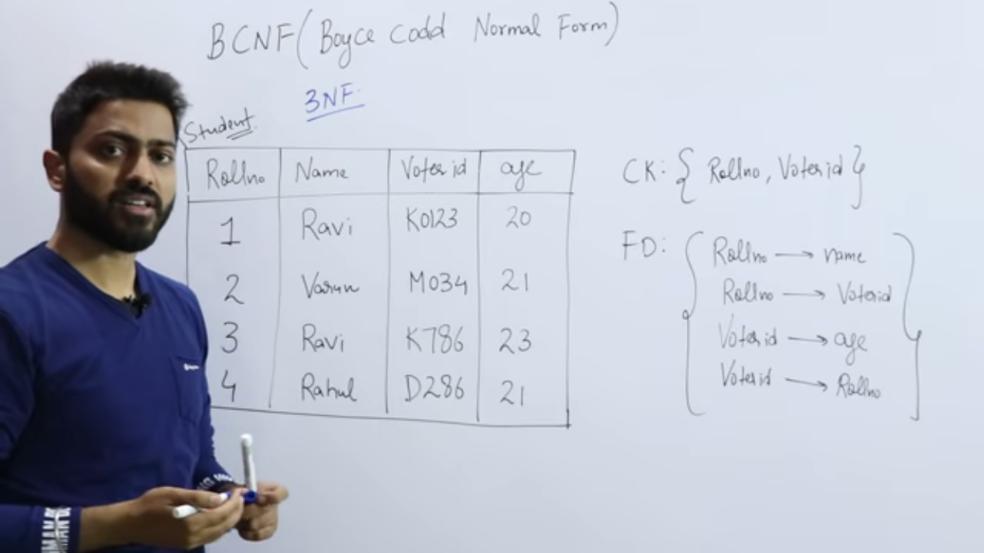 BCNF (Boyce Codd Normal Form)
3NF
Student
Rollno Name Voter id age
1 Ravi K0123 20
2 Varun M034 21
3 Ravi K786 23
4 Rahul D286 21
CK: { Rollno, Voter id }
FD: Rollno → name
Rollno → Voterid
Voter id → age
Voterid → Rollno